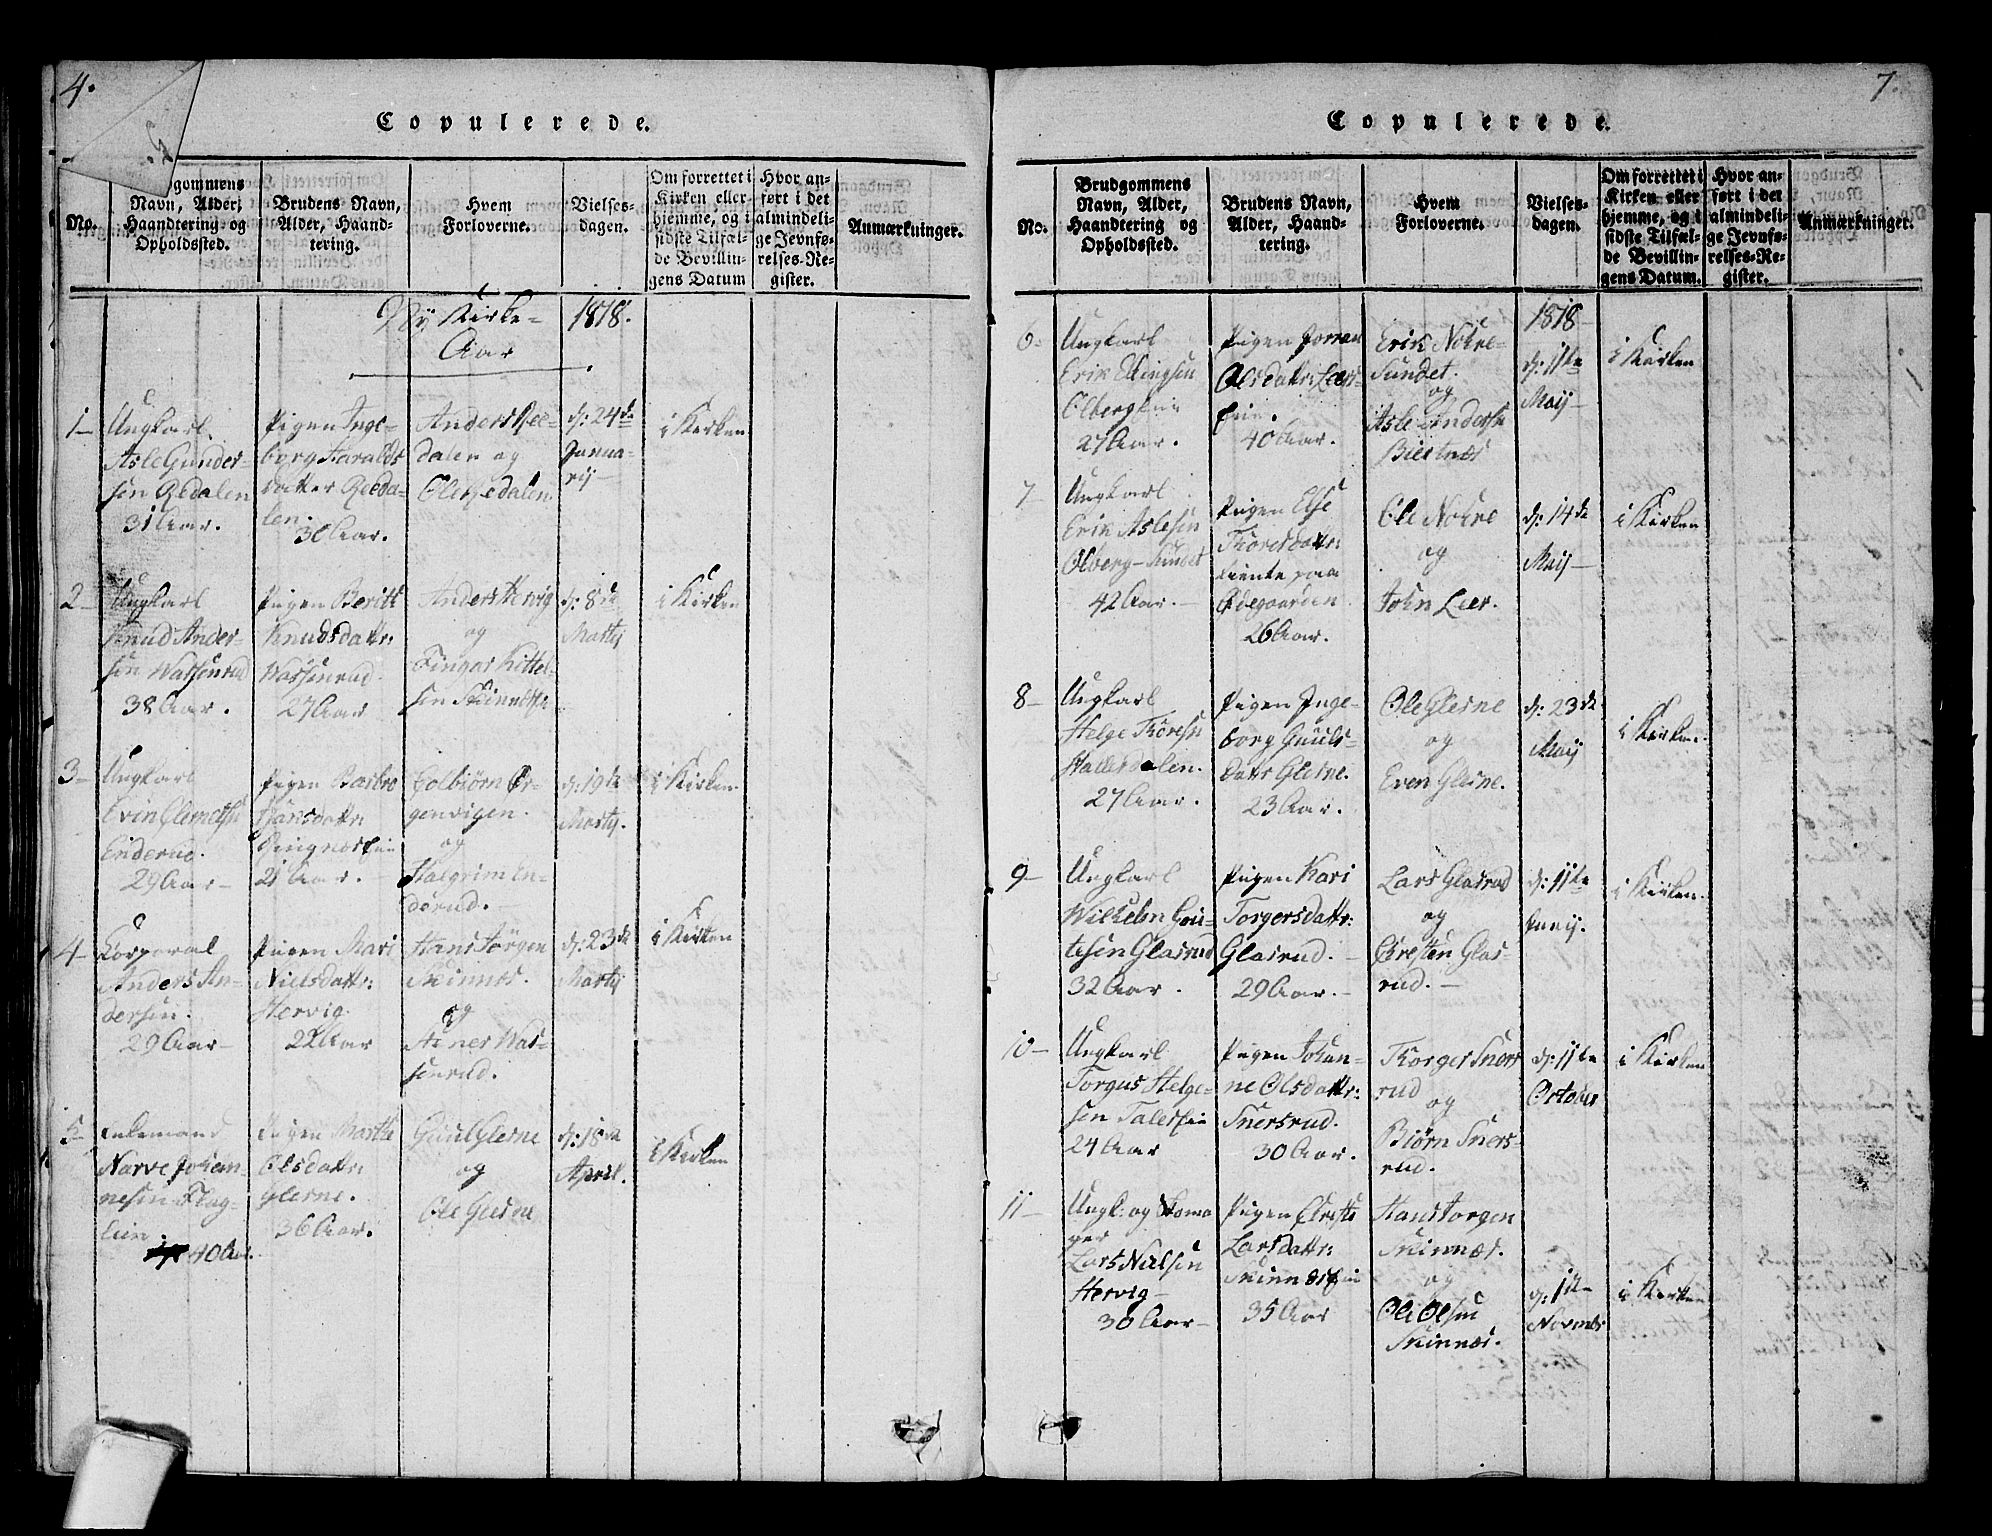 4.
Copulerede.
No.
Brudgommens
Navn, Alder,
Haandtering og
Opholdssted.
Brudens Navn,
Alder, Haand-
tering.
Hvem
Forloverne.
Vielses-
dagen.
Om forrettet i
Kirken eller
hjemme, og i
sidste Tilfæl-
de Bevillin-
gens Datum
Hvor an-
ført i det
almindeli-
ge Jevnfø-
relses-Re-
gister.
Anmærkninger.
Ny Kirke-
Aar
1818.
1-
Ungkarl
Asle Gunder-
sen Redalen
31 Aar.
Pigen Inge-
borg Haralds
datter Reeda-
len.
30 Aar.
Anders Ree-
dalen og
Ole Redalen.
d: 24de
Janua-
rij-
i Kirken
2-
Ungkarl
Knud Ander-
sen Wassenrud
38 Aar.
Pigen Beritt
Knudsdattr:
Wassenrud
27 Aar
Anders Hervig
og
Fingar Kittel-
sen
d: 8de
Martij
i Kirken
3-
Ungkarl
Evin Clemetsen
Enderud.
29 Aar-
Pigen Barbro
Hansdattr:
Ringnæs
21 Aar.
Golbiørn Ør-
genvigen.
og
Halgrim En-
derud.
d: 19de
Martij.
i Kirken
4-
Corporal
Anders An-
dersen.
29 Aar-
Pigen Mari
Nielsdattr:
Hervig
22 Aar
Hans Jörgen
Skinnes.
og
Asner Was-
senrud.
d: 23de
Martij
i Kirken
5-
Enkemand
Narve Johan-
nesen Flag-
lein
40 Aar.
Pigen Marthe
Olsdattr:
Glesne.
36 Aar.
Guul Glesne
og
Ole Glesne
d: 18de
April.
i Kirken
7.
Copulerede.
No.
Brudgommens
Navn, Alder,
Haandtering og
Opholdssted.
Brudens Navn,
Alder, Haand-
tering.
Hvem
Forloverne.
Vielses-
dagen.
Om forrettet i
Kirken eller
hjemme, og i
sidste Tilfæl-
de Bevillin-
gens Datum.
Hvor an-
ført i det
almindeli-
ge Jevnfø-
relses-Re-
gister.
Anmærkninger.
1818
6-
Ungkarl
Erik
Olberg
27 Aar.
Pigen Jorran
Olsdattr: Leers-
eie.
40 Aar.
Erik Nohre-
Sundet.
og
Asle Andersen
Biertnæs
d: 11te
Maij-
i Kirken
7-
Ungkarl
Erik Aslesen
Olberg-Sundet
42 Aar.-
Pigen Else
Thoresdattr:
tiente paa
Ødegaarden
26 Aar.
Ole Nohre
og
John Leer.
d: 14de
Maij-
i Kirken
8-
Ungkarl
Helge Thoresen
Hallesdalen.
27 Aar.
Pigen Inge-
borg Guuls-
dattr Glesne.
23 Aar.
Ole Glesne
og
Even Glesne.
d: 23de
Maij
i Kirken.
9-
Ungkarl
Wilhelm Gul-
tesen Glasrud
32 Aar.
Pigen Kari
Torgersdattr:
Glasrud.-
29 Aar.-
Lars Glasrud
og
Christen Glas-
rud.-
d: 11te
Junij.
i Kirken.
10-
Ungkarl
Torgus Helge-
sen
24 Aar
Pigen Johan-
ne Olsdattr:
Snersrud.
30 Aar.
Thorger Sners-
rud
og
Biørn Sners-
rud.
d: 11te
October
i Kirken
11-
Ungk: og Skoma
ger
Lars Nielsen
Hervig-
30 Aar-
Pigen Christi
Larsdattr:
Skinnæs
35 Aar
Hans Jorgen
Skinnæs.
og
Ole Olsen
Skinnæs.
d: 1ste
Novmbr
i Kirken